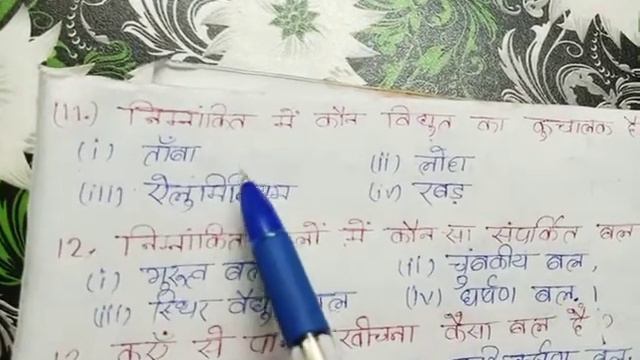 (11.) निम्नांकित में कौन विधुत का कुचालक है
(i) ताँबा (ii) लोहा
(iii) ऐलुमिनियम (iv) रबड़
12. निम्नांकित में कौन सा संपर्कित बल
(i) गुरुत्व बल (ii) चुंबकीय बल,
(iii) स्थिर वैधुत बल (iv) घर्षण बल।
कुएँ से खींचना कैसा बल है?